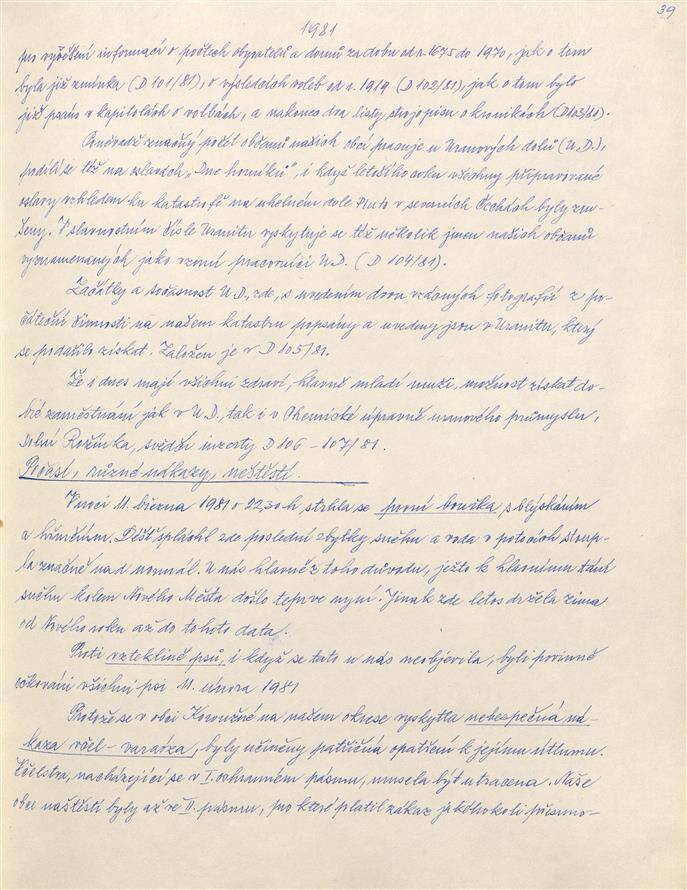 39
1981
pro vyčíslení informací o počtech obyvatelů a domů za dobu od r. 1675 do 1970, jak o tom
byla již zmínka (D 101/81), o výsledcích voleb od r. 1919 (D 102/81), jak o tom bylo
již psáno v kapitolách o volbách, a nakonec dva listy strojopisu o kronikách (D 103/81).
Poněvadž značný počet občanů našich obcí pracuje v Uranových dolů (U.D.),
podílí se též na oslavách „Dne horníků", i když letošího roku všechny připravované
oslavy vzhledem ku katastrofě na uhelném dole Pluto v severních Čechách byly zru-
šeny. V slavnostním čísle Uranitu vyskytuje se též několik jmen našich občanů
vyznamenaných jako vzorní pracovníci U.D. (D 104/81).
Začátky a současnost U.D., zde, s uvedením dvou vzdaných fotografií z po-
čáteční činnosti na našem katastru popsány a uvedeny jsou v Uranitu, který
se podařilo získat. Založen je v D 105/81.
Že i dnes mají všichni zdraví, hlavně mladí muži, možnost získat do-
bré zaměstnání jak v U.D., tak i v Chemické úpravně uranového průmyslu,
Dolní Rožínka, svědčí inzerty D 106 - 107/81.
Počasí, různé nákazy, neštěstí.
V noci 11. března 1981 o 22,30 h strhla se první bouřka, s blýskáním
a hřměním. Déšť spláchl zde poslední zbytky sněhu a voda v potocích stoup-
la značně nad normál. U nás hlavně z toho důvodu, ježto k hlavnímu tání
sněhu kolem Nového Města došlo teprve nyní. Jinak zde letos držela zima
od Nového roku až do tohoto data.
Proti vzteklině psů, i když se tato u nás neobjevila, byli povinně
očkováni všichni psi 11. února 1981
Protože se v obci Koroužné na našem okrese vyskytla nebezpečná ná-
kaza včel - varaóza, byly učiněny patřičná opatření k jejímu útlumu.
Včelstva, nacházející se v I. ochranném pásmu, musela být utracena. Naše
obce naštěstí byly až ve II. pásmu, pro které platil zákaz jakéhokoli přesuno-